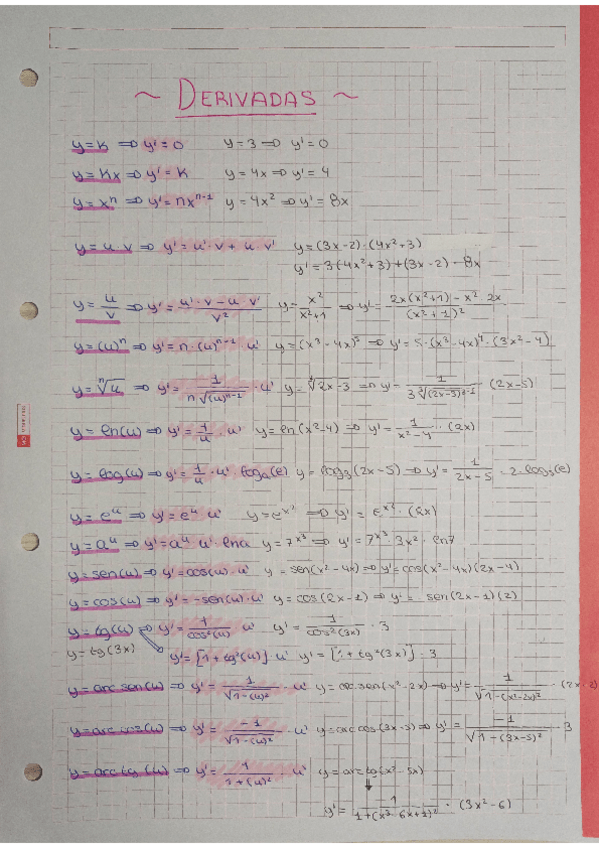 ~ DERIVADAS ~
y=k ⇒ y'=0 y=3 ⇒ y'=0
y=kx ⇒ y'=k y=4x ⇒ y'=4
y=xⁿ ⇒ y'=nxⁿ⁻¹ y=4x² ⇒ y'=8x
y=u·v ⇒ y'=u'·v+u·v' y=(3x-2)·(4x²+3)
y'=3(4x²+3)+(3x-2)·8x
y=u/v ⇒ y'=(u'·v-u·v')/v² y=x²/(x²+1) ⇒ y'=(2x(x²+1)-x²·2x)/(x²+1)²
y=(u)ⁿ ⇒ y'=n·(u)ⁿ⁻¹·u' y=(x³-4x)⁵ ⇒ y'=5·(x³-4x)⁴·(3x²-4)
y=ⁿ√u ⇒ y'=1/(n ⁿ√(u)ⁿ⁻¹)·u'
y=ln(u) ⇒ y'=1/u·u' y=ln(x²-4) ⇒ y'=1/(x²-4)·(2x)
y=log(u) ⇒ y'=1/u·u' logₐ(e) y=log₃(2x-5) ⇒ y'=1/(2x-5)·2·log₃(e)
y=eᵘ ⇒ y'=eᵘ·u' y=e^x² ⇒ y'=e^x²·(2x)
y=aᵘ ⇒ y'=aᵘ·u'·lna y=7^x³ ⇒ y'=7^x³·3x²·ln7
y=sen(u) ⇒ y'=cos(u)·u' y=sen(x²-4x) ⇒ y'=cos(x²-4x)(2x-4)
y=cos(u) ⇒ y'=-sen(u)·u' y=cos(2x-1) ⇒ y'=-sen(2x-1)(2)
y=tg(u) ⇒ y'=1/cos²(u)·u' y'=1/cos²(3x)·3
y=tg(3x) y'=[1+tg²(u)]·u' y'=[1+tg²(3x)]·3
y=arc sen(u) ⇒ y'=1/√(1-(u)²)·u' y=arc sen(x²-2x) ⇒ y'=1/√(1-(x²-2x)²)·(2x-2)
y=arc cos(u) ⇒ y'=-1/√(1-(u)²)·u' y=arc cos(3x-5) ⇒ y'=-1/√(1-(3x-5)²)·3
y=arc tg(u) ⇒ y'=1/(1+(u)²)·u' y=arc tg
y'=1/(1+(x³-6x+1)²)·(3x²-6)